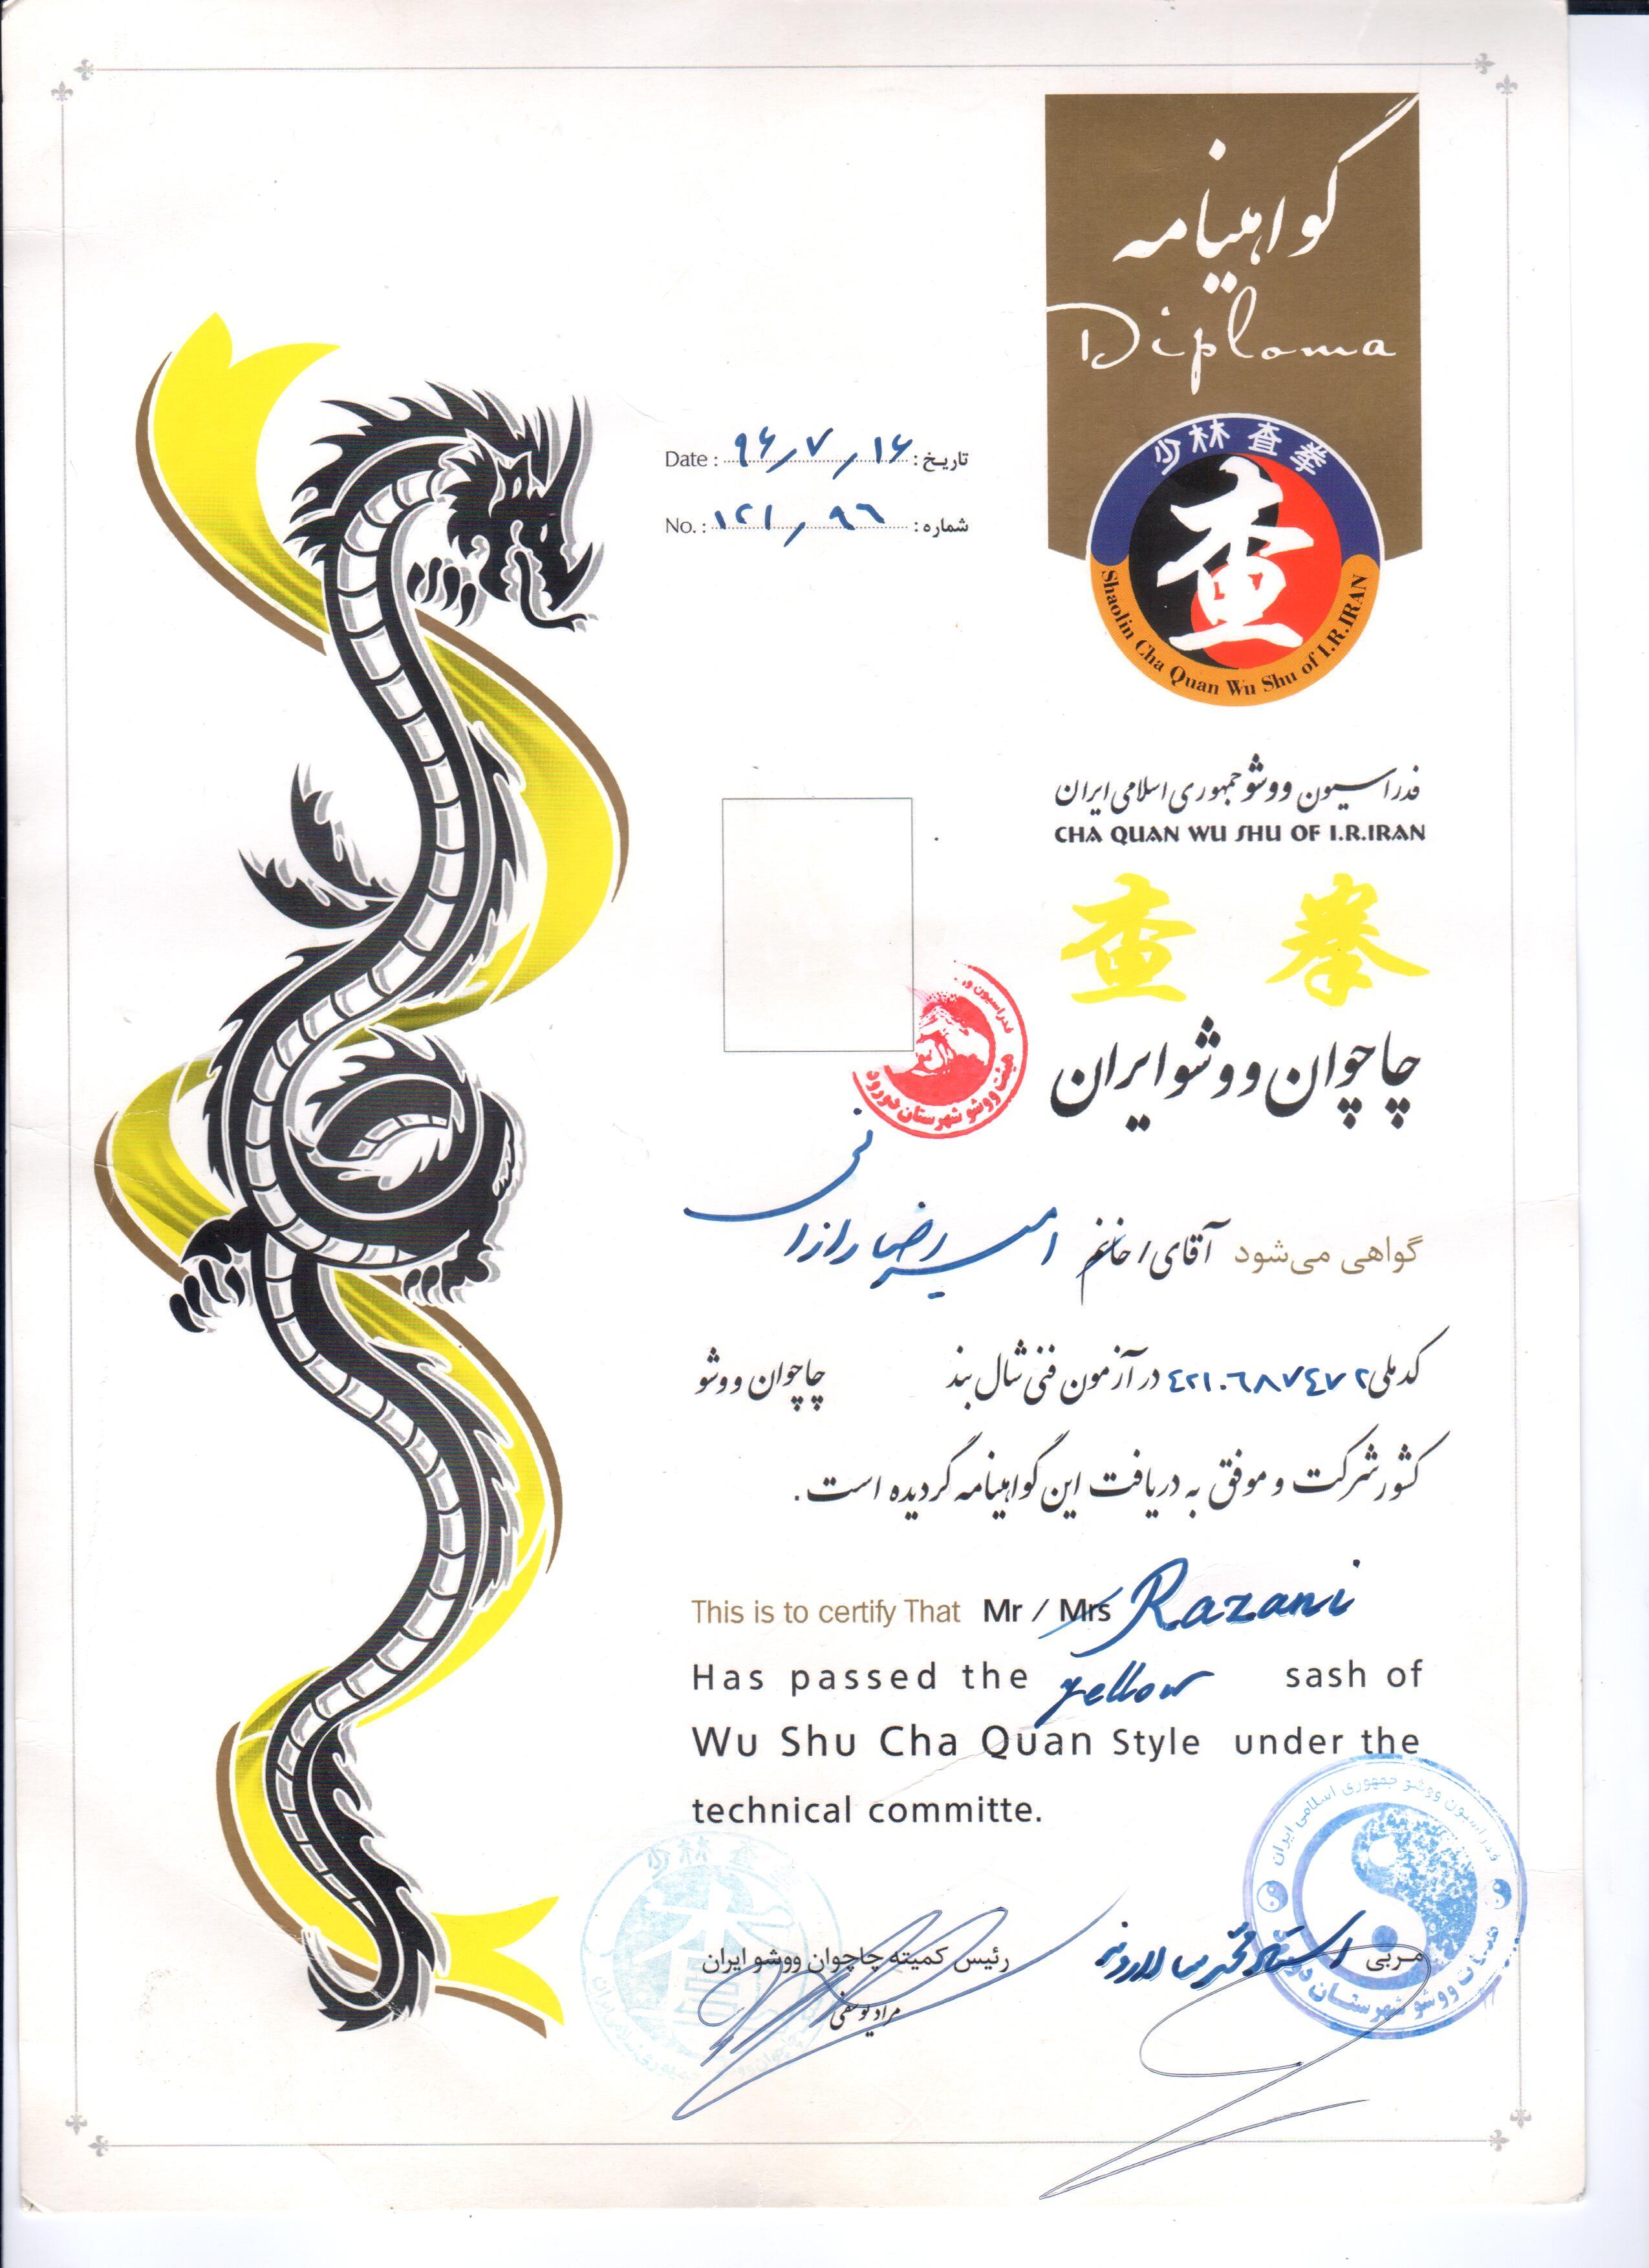 گواهینامه
Diploma
少林查拳
查
Shaolin Cha Quan Wu Shu of I.R.IRAN
Date : ۹۶/۷/۱۶ تاریخ :
No. : ۱۲۱/۹۶ شماره :
فدراسیون ووشو جمهوری اسلامی ایران
CHA QUAN WU SHU OF I.R.IRAN
查 拳
چاچوان ووشو ایران
فدراسیون و
هیئت ووشو شهرستان دورود
گواهی می‌شود آقای / خانم امیررضا رازانی
کد ملی ۴۲۱۰۶۸۷۴۷۲ در آزمون فنی شال بند چاچوان ووشو
کشور شرکت و موفق به دریافت این گواهینامه گردیده است .
This is to certify That Mr / Mrs Razani
Has passed the yellow sash of
Wu Shu Cha Quan Style under the
technical committe.
فدراسیون ووشو جمهوری اسلامی ایران
هیئت ووشو شهرستان
少林查
رئیس کمیته چاچوان ووشو ایران
مراد یوسفی
مربی استاد